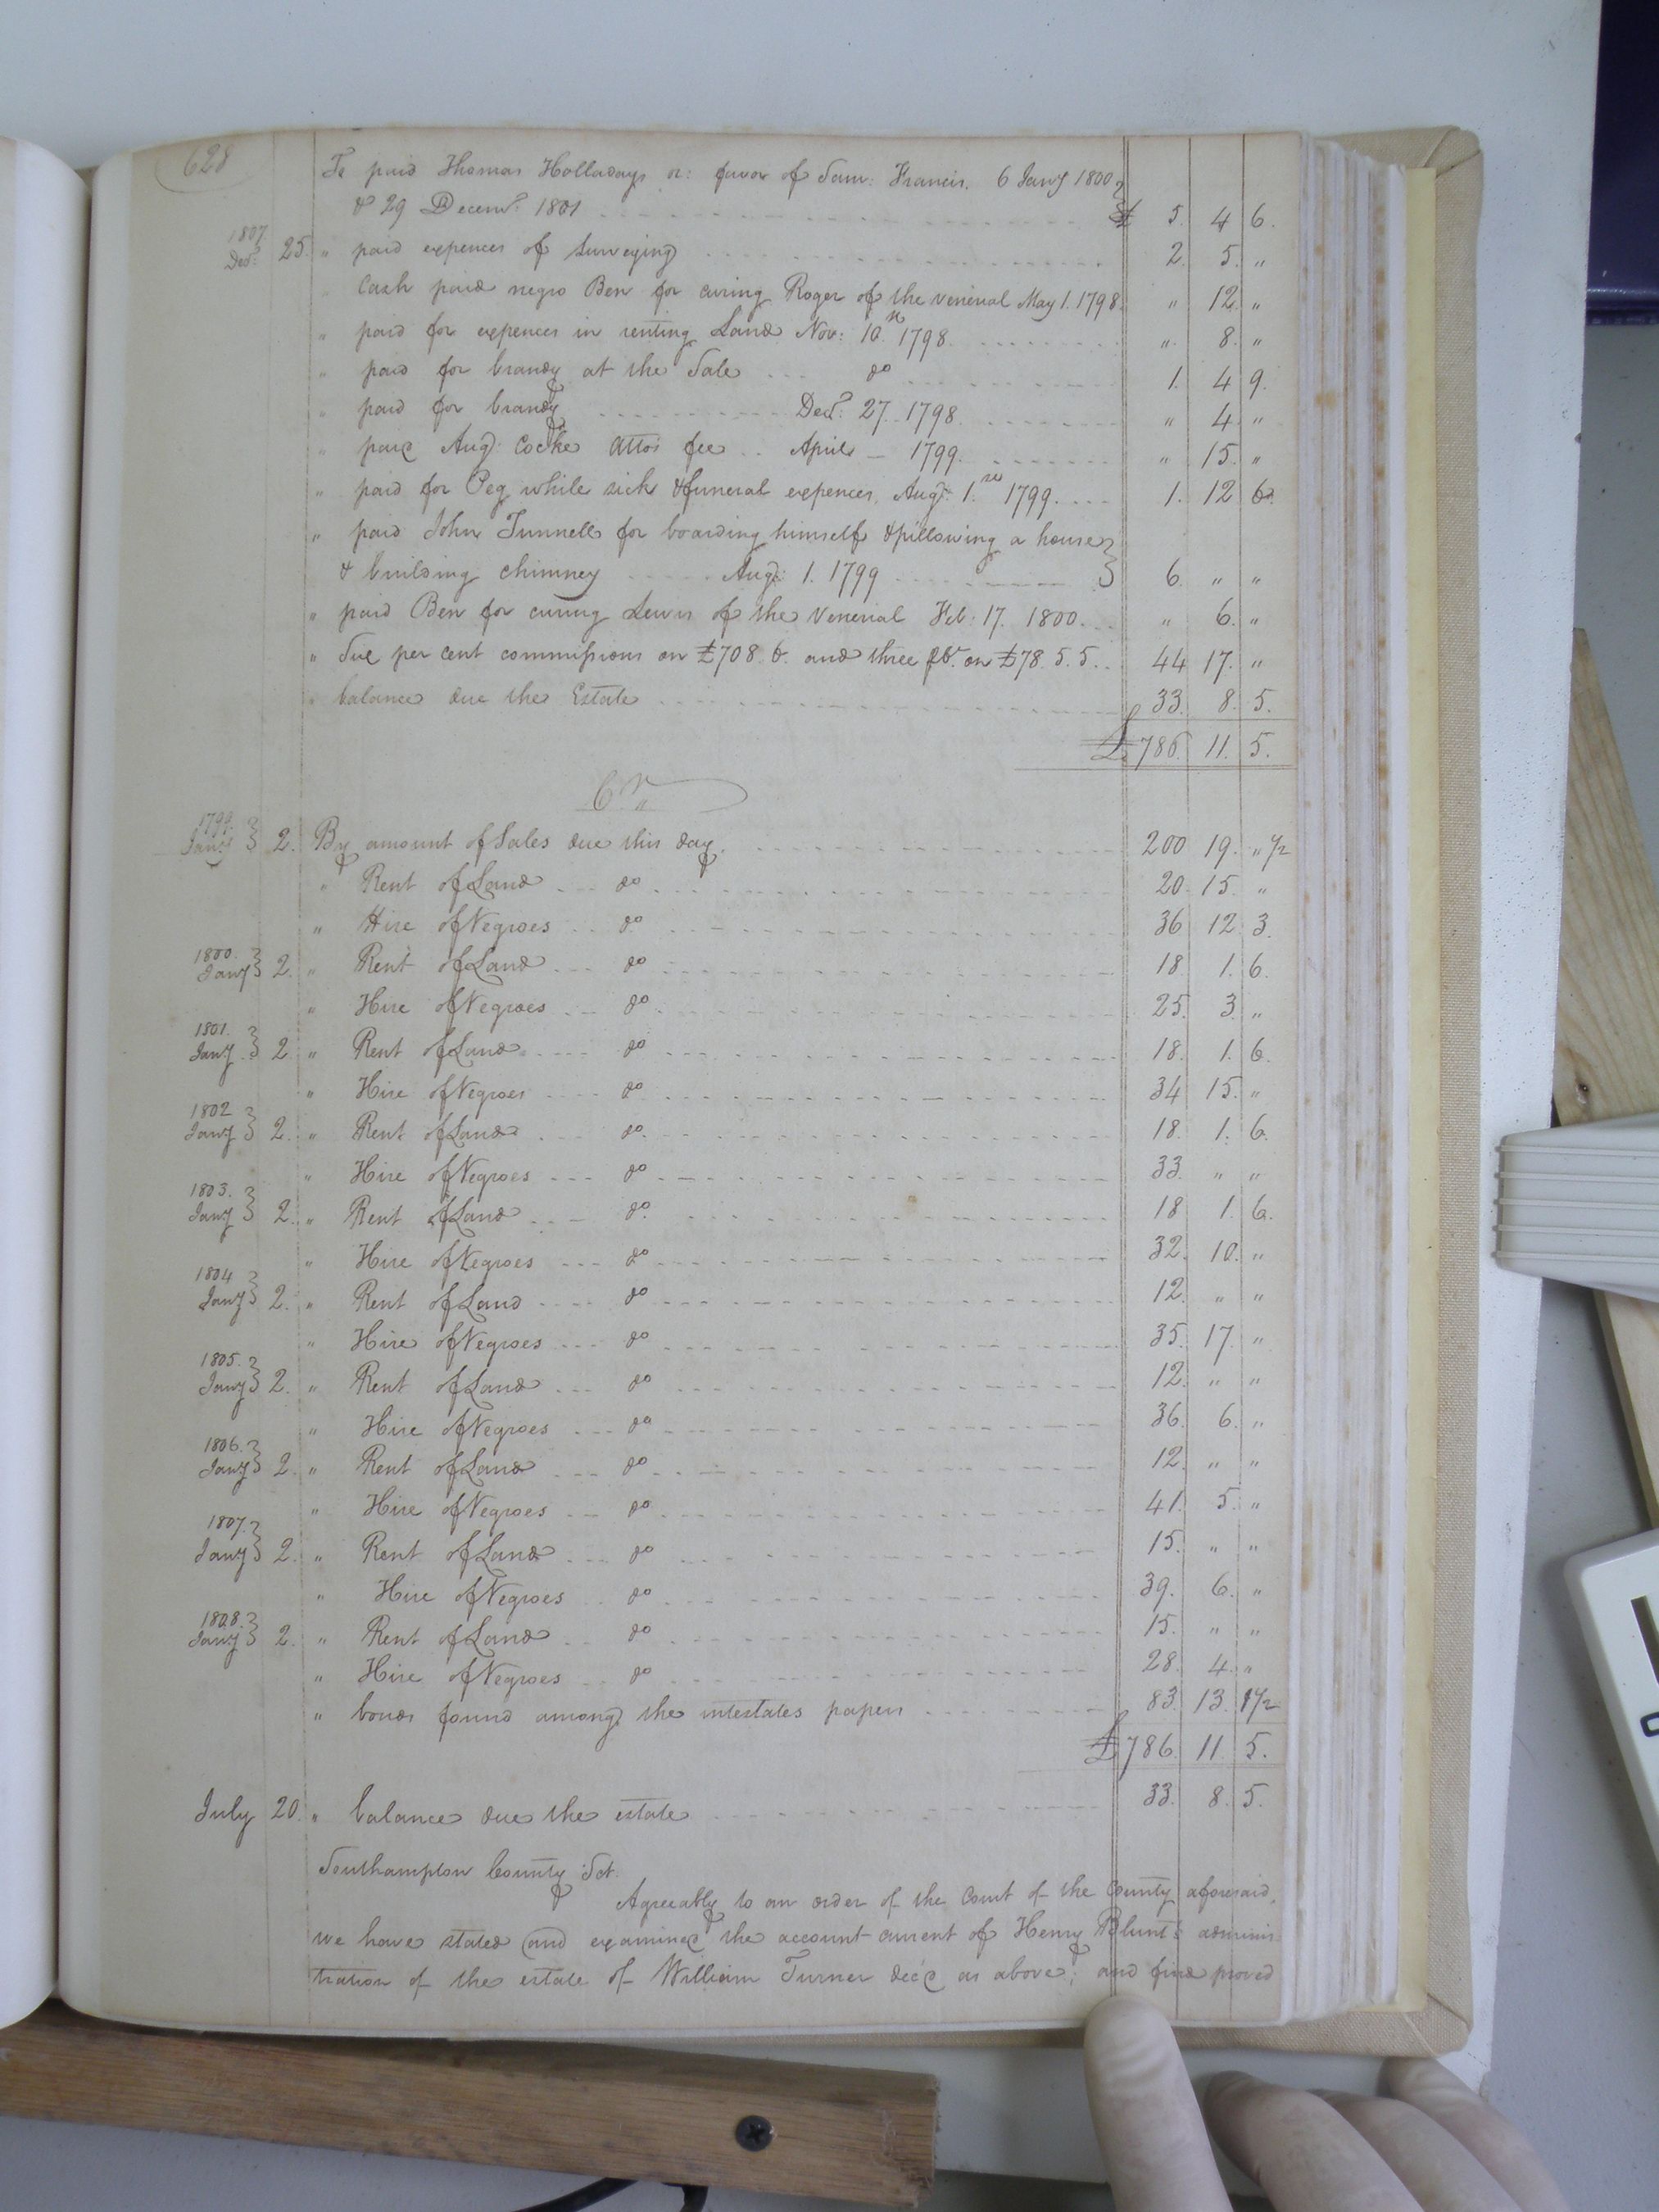 628
To paid Thomas Holladays or: favor of Sam: Francis. 6 Jany 1800
& 29 Decemr. 1801 £ 5. 4 6.
1807 Decr. 25. " paid expences of surveying 2. 5. "
" Cash paid negro Ben for curing Roger of the venerial May 1. 1798. " 12. "
" paid for expences in renting Land Nov: 10th 1798 " 8. "
" paid for brandy at the Sale do 1. 4 9.
" paid for brandy Decr. 27. 1798 " 4. "
" paid Augt. Cocke attos fee April 1799. " 15. "
" paid for Peg while sick & funeral expences, Augt. 1.st 1799. 1. 12 6.
" paid John Tunnell for boarding himself & pillowing a house
& building chimney Augt. 1. 1799 6 " "
" paid Ben for curing Lewis of the Venerial Feb: 17. 1800. " 6. "
" per cent commissions on £708.6. and three on £78.5.5. 44 17. "
" balance due the Estate 33. 8. 5.
£786. 11. 5.
Cr.
1799. Jany 2. By amount of Sales due this day. 200 19. " ½
" Rent of Land do 20. 15. "
" Hire of Negroes do 36 12 3.
1800. Jany 2. " Rent of Land do 18 1. 6.
" Hire of Negroes do 25. 3 "
1801. Jany 2 " Rent of Land do 18. 1. 6.
" Hire of Negroes do 34 15. "
1802 Jany 2. " Rent of Land do. 18. 1. 6.
" Hire of Negroes do 33. " "
1803. Jany 2. " Rent of Land do. 18 1. 6.
" Hire of Negroes do 32. 10. "
1804 Jany 2. " Rent of Land do 12. " "
" Hire of Negroes do 35. 17. "
1805. Jany 2. " Rent of Land do 12. " "
" Hire of Negroes do 36. 6. "
1806. Jany 2. " Rent of Land do 12. " "
" Hire of Negroes do 41. 5. "
1807. Jany 2. " Rent of Land do 15. " "
" Hire of Negroes do 39. 6. "
1808. Jany 2. " Rent of Land do 15. " "
" Hire of Negroes do 28. 4. "
" bonds found among the intestates papers 83. 13. 1½
£786. 11. 5.
July 20. " balance due the estate 33. 8. 5.
Southampton County Sct.
Agreeably to an order of the Court of the County aforesaid,
we have stated and examined the account current of Henry Blunt's adminis-
tration of the estate of William Turner dec'd as above; and find proved